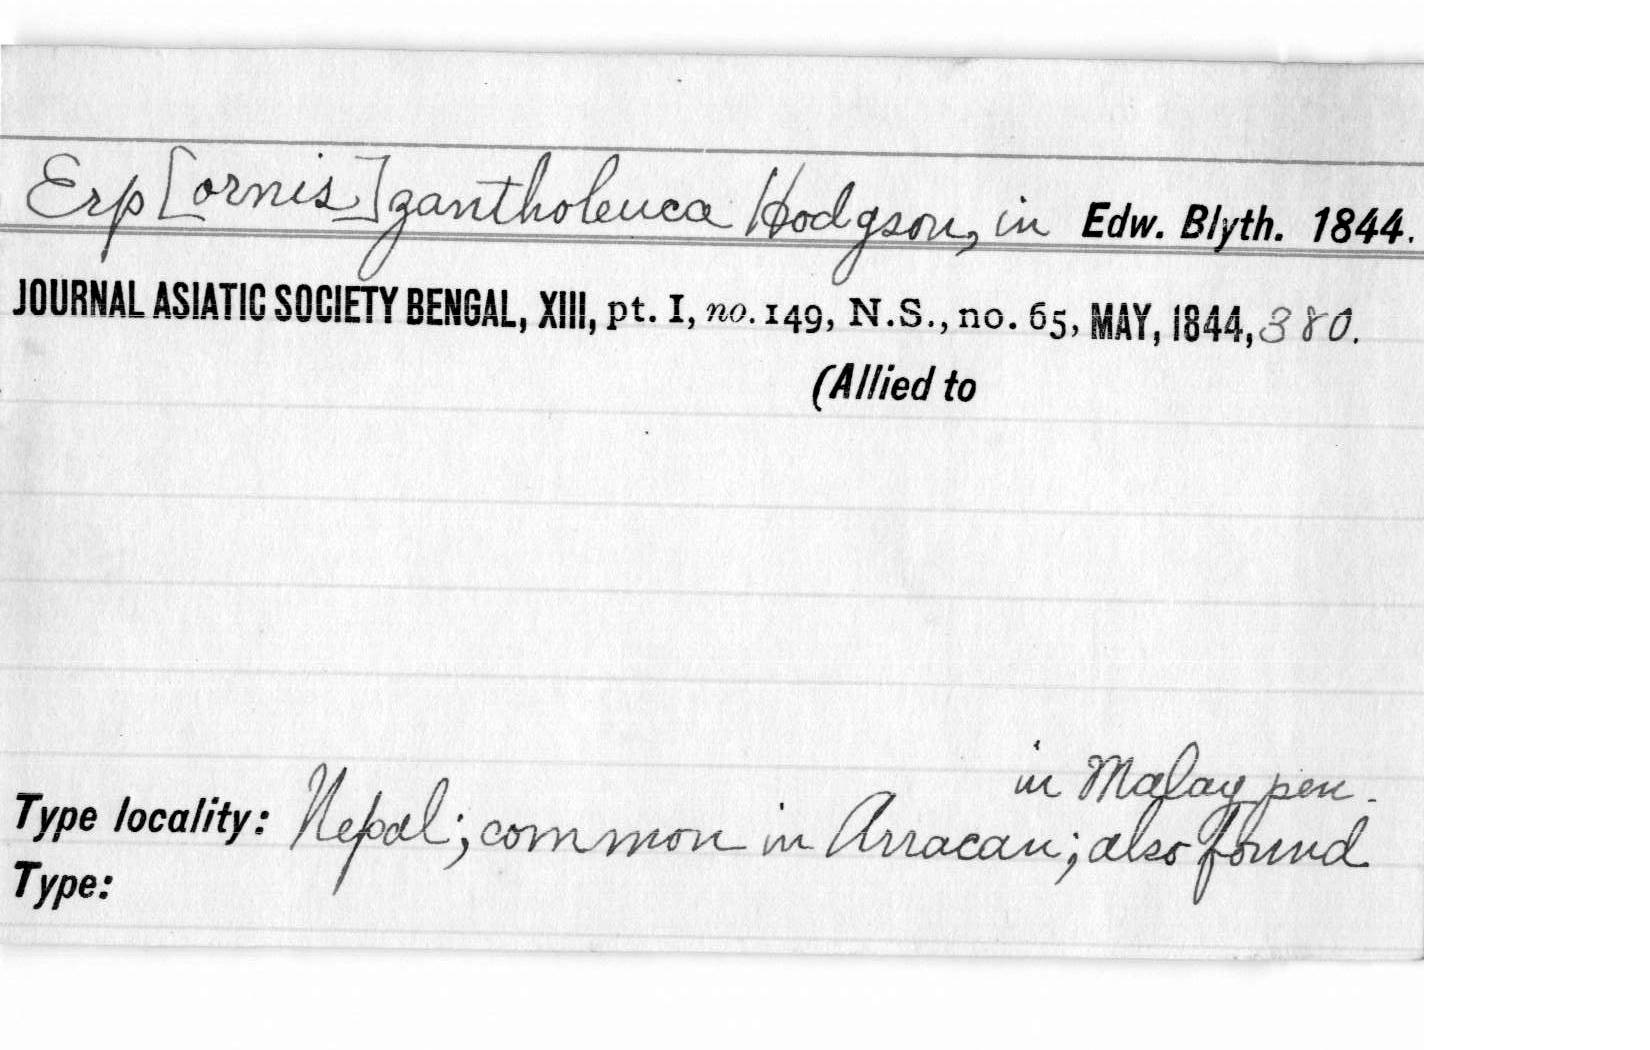 Erp[ornis] zantholeuca Hodgson, in Edw. Blyth. 1844.
JOURNAL ASIATIC SOCIETY BENGAL, XIII, pt. I, no. 149, N.S., no. 65, MAY, 1844, 380.
(Allied to
in Malay pen.
Type locality: Nepal; common in Arracan; also found
Type: